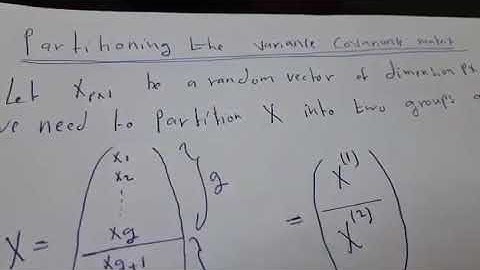 Partitioning the variance Covariance matrix
Let Xpx1 be a random vector of dimension px
we need to partition X into two groups
x1
x2
g
X(1)
X =
xg
=
X(2)
xg+1